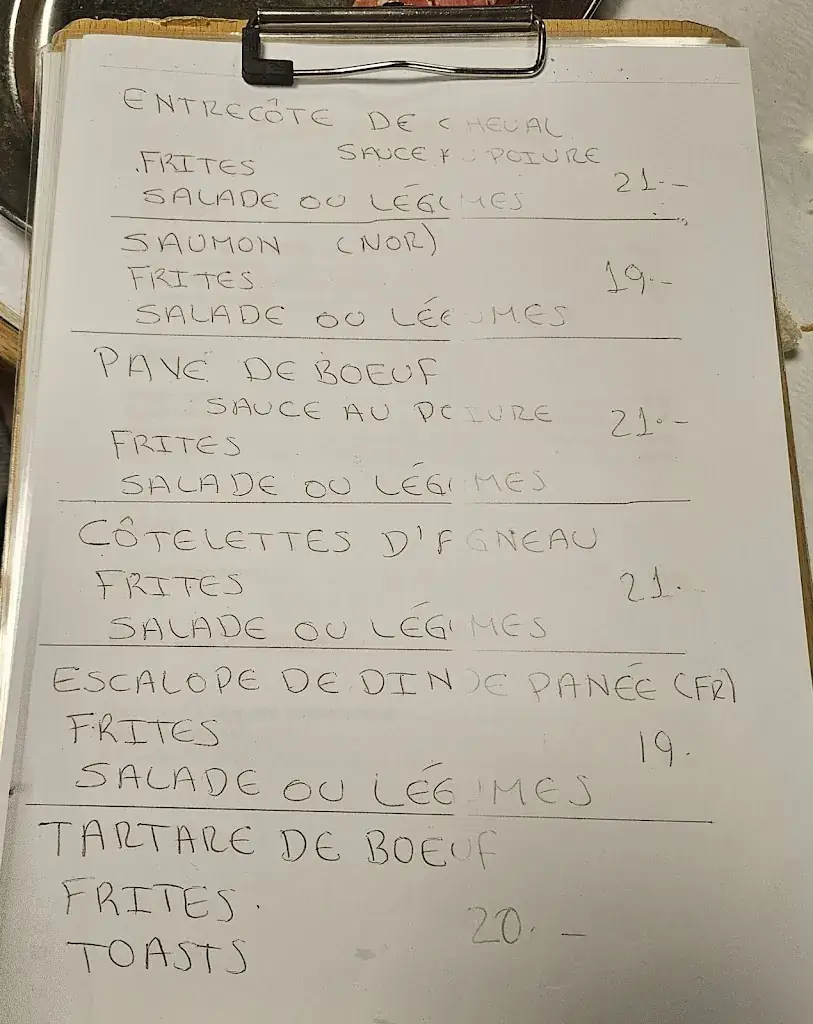 ENTRECÔTE DE CHEVAL
SAUCE AU POIVRE
FRITES
21.-
SALADE OU LÉGUMES
SAUMON (NOR)
FRITES
19.-
SALADE OU LÉGUMES
PAVÉ DE BOEUF
SAUCE AU POIVRE
21.-
FRITES
SALADE OU LÉGUMES
CÔTELETTES D'AGNEAU
FRITES
21.-
SALADE OU LÉGUMES
ESCALOPE DE DINDE PANÉE (FR)
FRITES
19.
SALADE OU LÉGUMES
TARTARE DE BOEUF
FRITES.
20.-
TOASTS